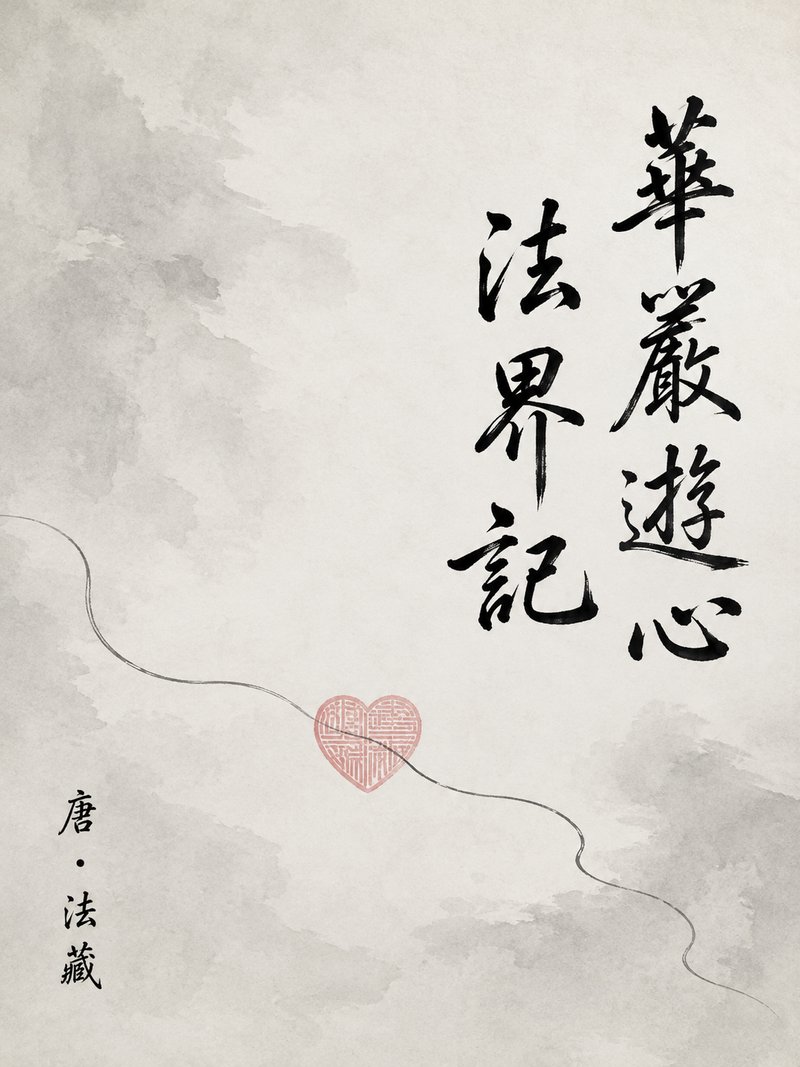 華嚴遊心
法界記
唐・法藏